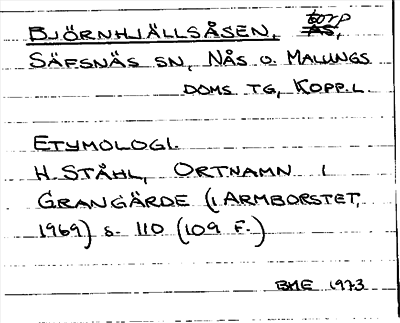 torp
BJÖRNHJÄLLSÅSEN, ÅS,
SÄFSNÄS SN, NÅS O. MALUNGS
DOMS TG, KOPP. L.
ETYMOLOGI.
H. STÅHL, ORTNAMN I
GRANGÄRDE (I ARMBORSTET,
1969) S. 110 (109 F.)
BME 1973